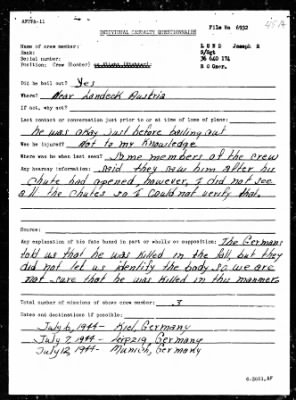 AFPPA-11
INDIVIDUAL CASUALTY QUESTIONNAIRE
File No 6932
Name of crew member: LUND Joseph E
Rank: S/Sgt
Serial number: 36 640 174
Position: (Crew
R G Gner.
Did he bail out? Yes
Where? Near Landeck Austria
If not, why not?
Last contact or conversation just prior to or at time of loss of plane:
he was okay just before bailing out
Was he injured? Not to my Knowledge
Where was he when last seen? Some members of the crew
Any hearsay information: said they saw him after his
chute had opened, however, I did not see
all the chutes so I could not verify that.
Source:
Any explanation of his fate based in part or wholly on supposition: The Germans
told us that he was killed in the fall, but they
did not let us identify the body so we are
not sure that he was killed in this manner.
Total number of missions of above crew member: 3
Dates and destinations if possible:
July 6, 1944 - Kiel, Germany
July 7, 1944 - Leipzig, Germany
July 12, 1944 - Munich, Germany